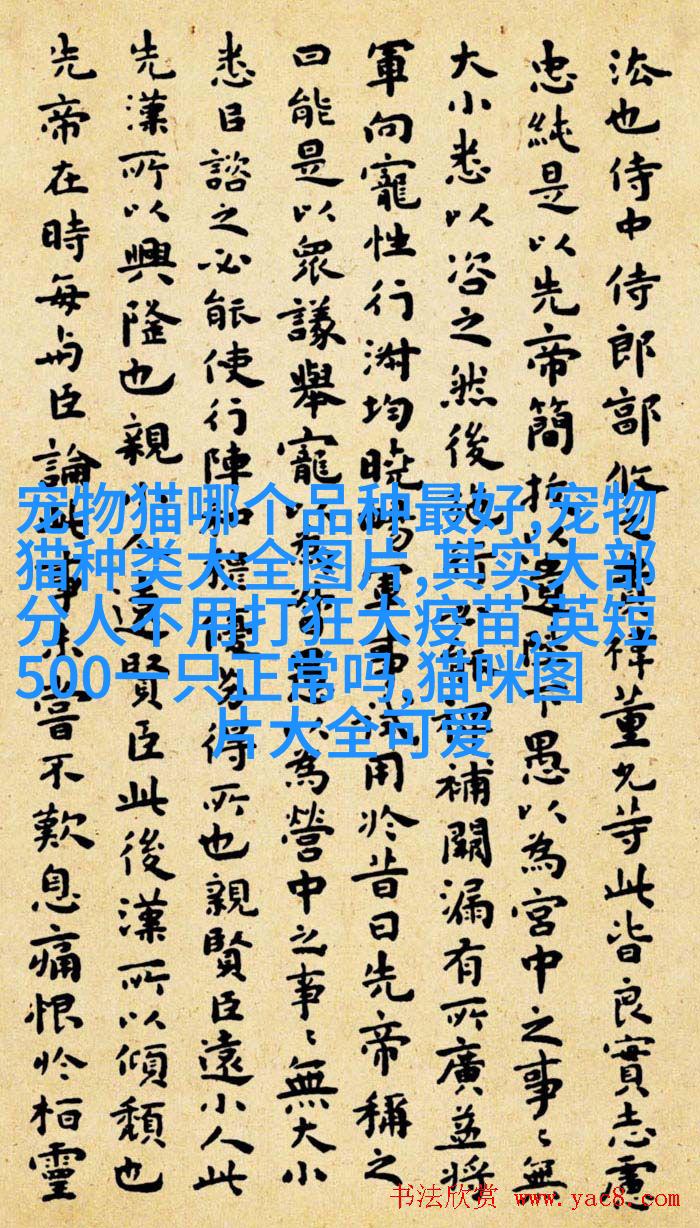 法也侍中侍郎郭攸之費禕董允等此皆良實志慮
忠純是以先帝簡拔以遺陛下愚以為宮中之事〻無
大小悉以咨之然後施行必能裨補闕漏有所廣益將
軍向寵性行淑均曉暢軍事試用於昔日先帝稱之
曰能是以眾議舉寵以為督愚以為營中之事〻無大小
悉以諮之必能使行陣和穆優劣得所也親賢臣遠小人此
先漢所以興隆也親小人遠賢臣此後漢所以傾頹也
先帝在時每與臣論此事未嘗不歎息痛恨於桓靈
宠物猫哪个品种最好,宠物
猫种类大全图片,其实大部
分人不用打狂犬疫苗,英短
500一只正常吗,猫咪图
片大全可爱
书法欣赏 www.yac8.com